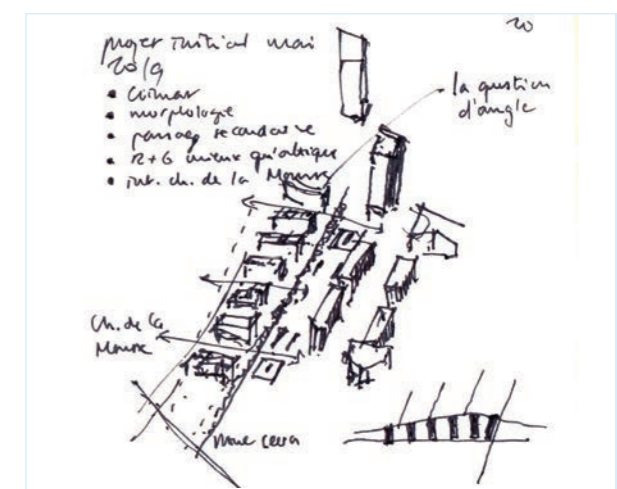 20
projet initial mai
2019
• climat
• morphologie
• passage secondaire
• R+6 mieux qu'attique
• int. ch. de la Mousse
la question
d'angle
Ch. de la
Mousse